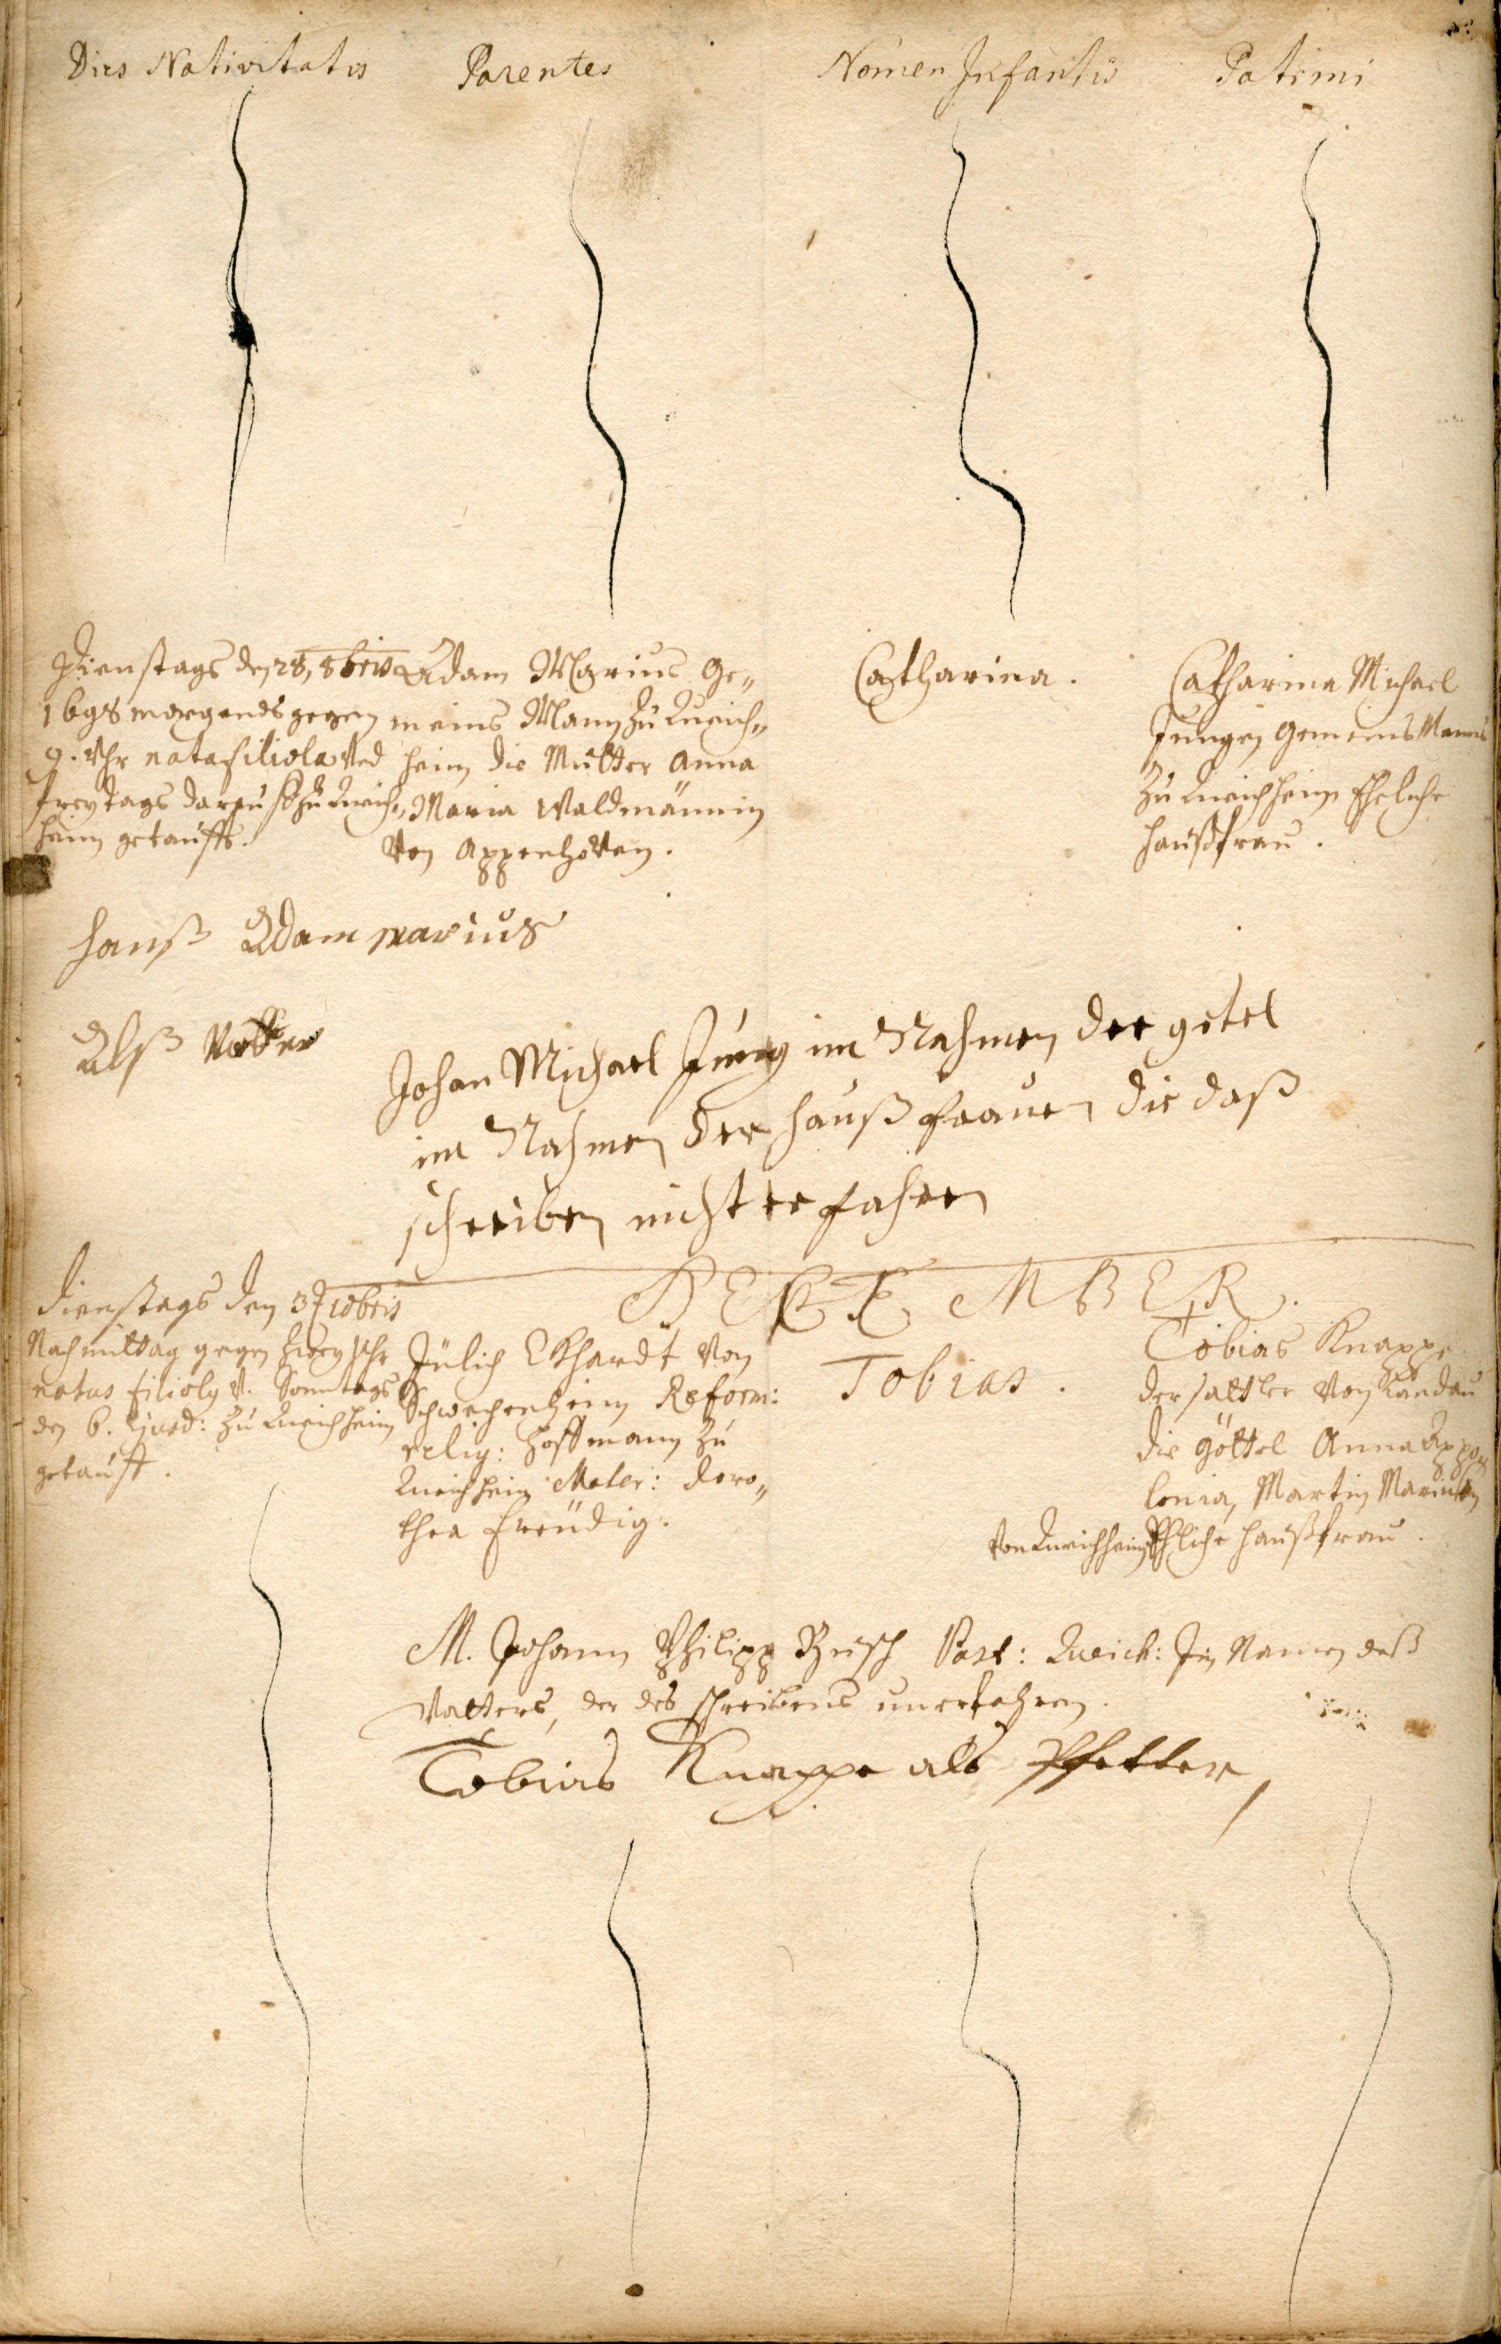 Dies Nativitatis Parentes Nomen Infantis Patrini
Dienstags den 28, 8bris
1698 morgends gegen
9. Uhr nata filiola Vnd
freytags darauff zu Queich„
heim getaufft.
Adam Marius Ge„
meins Mann zu Queich„
heim die Mutter Anna
Maria Waldmännin
Von Appenhoven.
Catharina.
Catharina Michael
Jungen Gemeins Manns
zu Queichheim Eheliche
Haußfrau.
Hanß Adam marius
Alß Vatter
Johan Michael Jung im Nahmen der getel
im Nahmen der haußfrauen die daß
schreiben nicht erfahren
DECEMBER.
Dienstags den 3 Xbris
Nachmittag gegen zwey Uhr
natus filiolg V. Sonntags
den 6. Ejusd: zu Queichheim
getaufft.
Jülich Ekhardt Von
Schwechenheim Reform:
relig: Hoffmann zu
Queichheim Mater: doro„
thea Freüdig.
Tobias.
Tobias Knappe
der sattler Von Landau
die göttel Anna Appo„
lonia, Martin Mariusen
Von Queichheim Ehliche Haußfrau.
M. Johann Philipp Busch Past: Queich: Im Namen deß
Vatters, der des schreibens unerfahren.
Tobias Knappe als Pfetter,